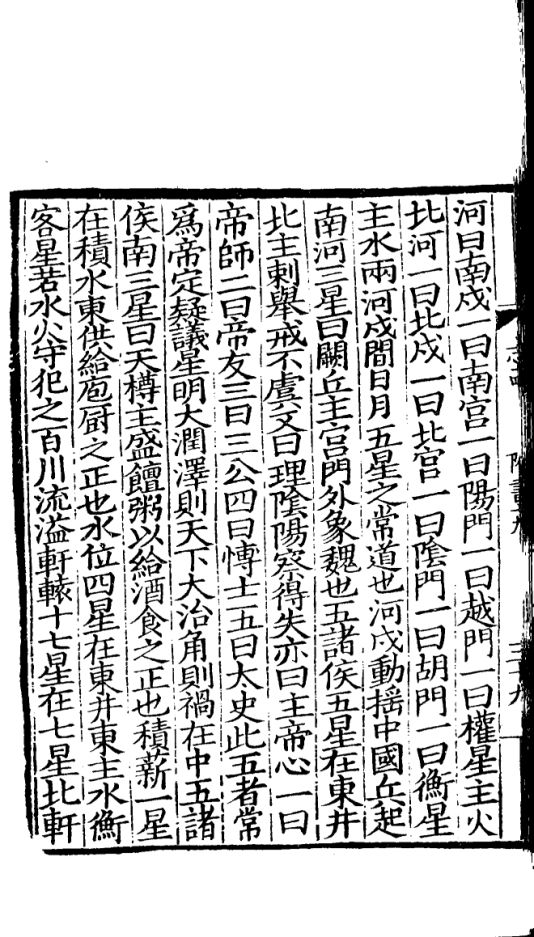 河曰南戍一曰南宮一曰陽門一曰越門一曰權星主火
北河一曰北戍一曰北宮一曰陰門一曰胡門一曰衡星
主水兩河戍間日月五星之常道也河戍動揺中國兵起
南河三星曰闕丘主宮門外象魏也五諸侯五星在東井
北主刺舉戒不虞又曰理陰陽察得失亦曰主帝心一曰
帝師二曰帝友三曰三公四曰愽士五曰太史此五者常
爲帝定疑議星明大潤澤則天下大治角則禍在中五諸
侯南三星曰天樽主盛饘粥以給酒食之正也積薪一星
在積水東供給庖厨之正也水位四星在東井東主水衡
客星若水火守犯之百川流溢軒轅十七星在七星北軒